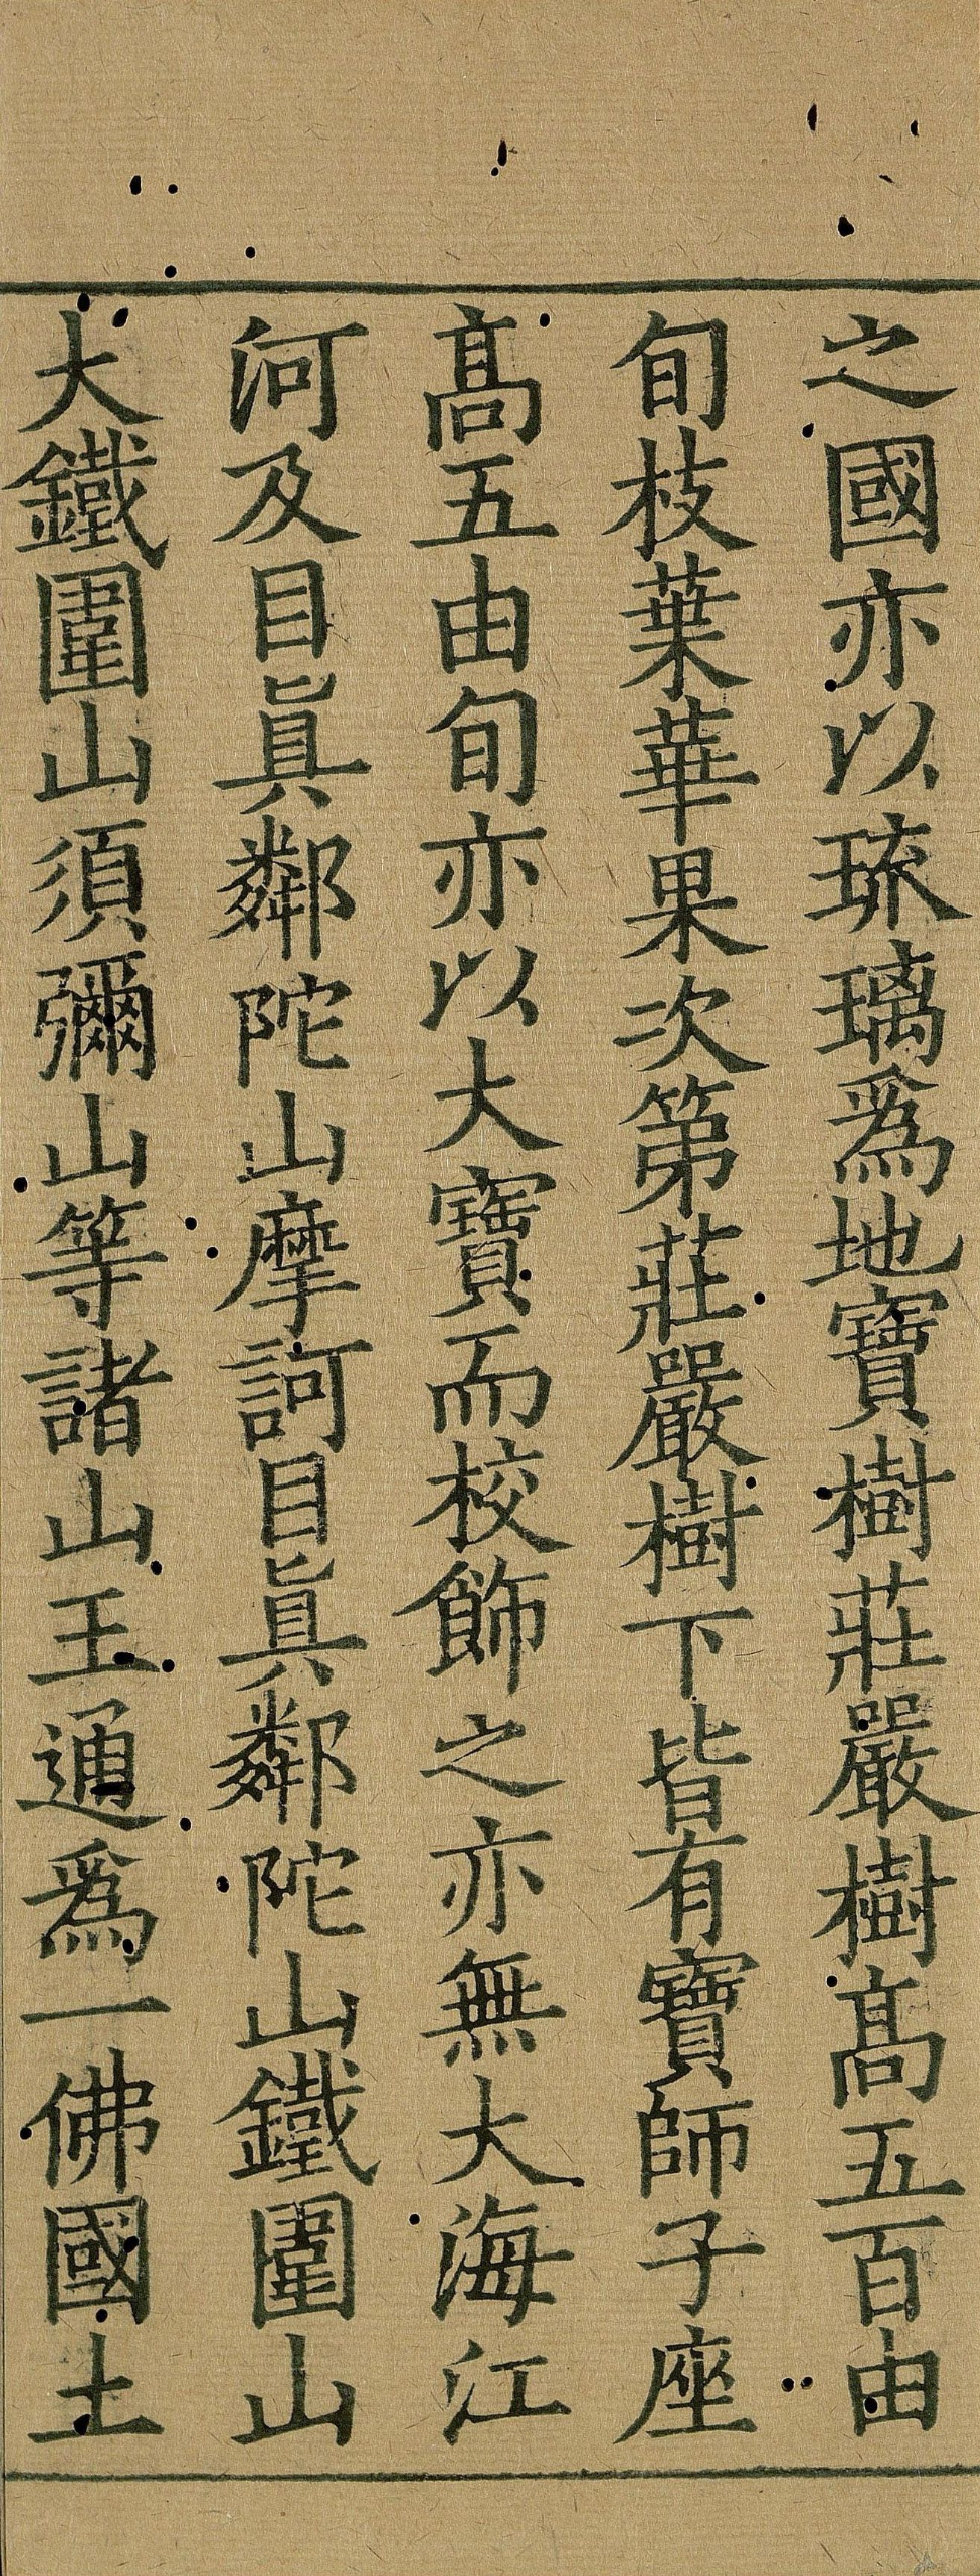 之國亦以琉璃爲地寶樹莊嚴樹髙五百由
旬枝葉華果次第莊嚴樹下皆有寶師子座
髙五由旬亦以大寶而校飾之亦無大海江
河及目眞鄰陀山摩訶目眞鄰陀山鐵圍山
大鐵圍山須彌山等諸山王通爲一佛國土